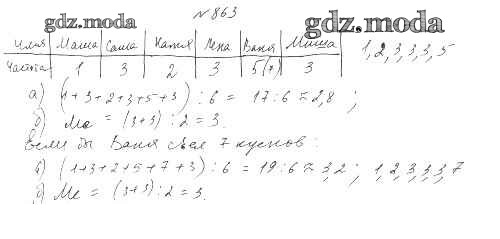 № 863
gdz.moda gdz.moda
Имя Маша Саша Катя Лена Ваня Миша 1, 2, 3, 3, 3, 5
Частота 1 3 2 3 5(7) 3
а) (1+3+2+3+5+3) : 6 = 17 : 6 ≈ 2,8 ;
б) Me = (3+3) : 2 = 3.
Если бы Ваня съел 7 кусков :
а) (1+3+2+5+7+3) : 6 = 19 : 6 ≈ 3,2 ; 1, 2, 3, 3, 3, 7
б) Me = (3+3) : 2 = 3.